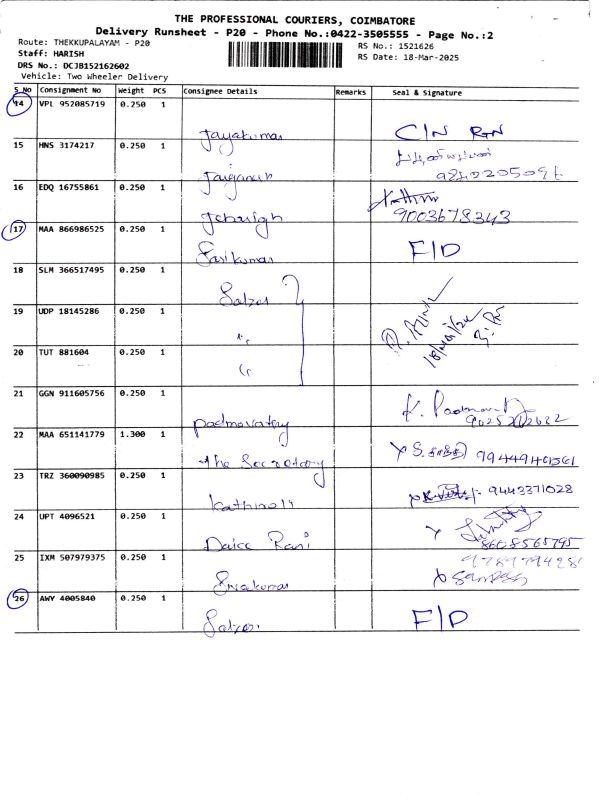 THE PROFESSIONAL COURIERS, COIMBATORE
Delivery Runsheet - P20 - Phone No.:0422-3505555 - Page No.:2
Route: THEKKUPALAYAM - P20
RS No.: 1521626
Staff: HARISH
RS Date: 18-Mar-2025
DRS No.: DCJB152162602
Vehicle: Two Wheeler Delivery
S No Consignment No Weight PCS Consignee Details Remarks Seal & Signature
14 VPL 952085719 0.250 1 Jayakumar C/N
15 HNS 3174217 0.250 1
16 EDQ 16755861 0.250 1 9003678343
17 MAA 866986525 0.250 1 Sasikumar F/D
18 SLM 366517495 0.250 1
19 UDP 18145286 0.250 1
20 TUT 881604 0.250 1
21 GGN 911605756 0.250 1 Padmavathy K.
22 MAA 651141779 1.300 1 The Secretary
23 TRZ 360090985 0.250 1 9443371028
24 UPT 4096521 0.250 1 Daisc Rani 8608565795
25 IXM 507979375 0.250 1 Sivakumar
26 AWY 4005840 0.250 1 F/D